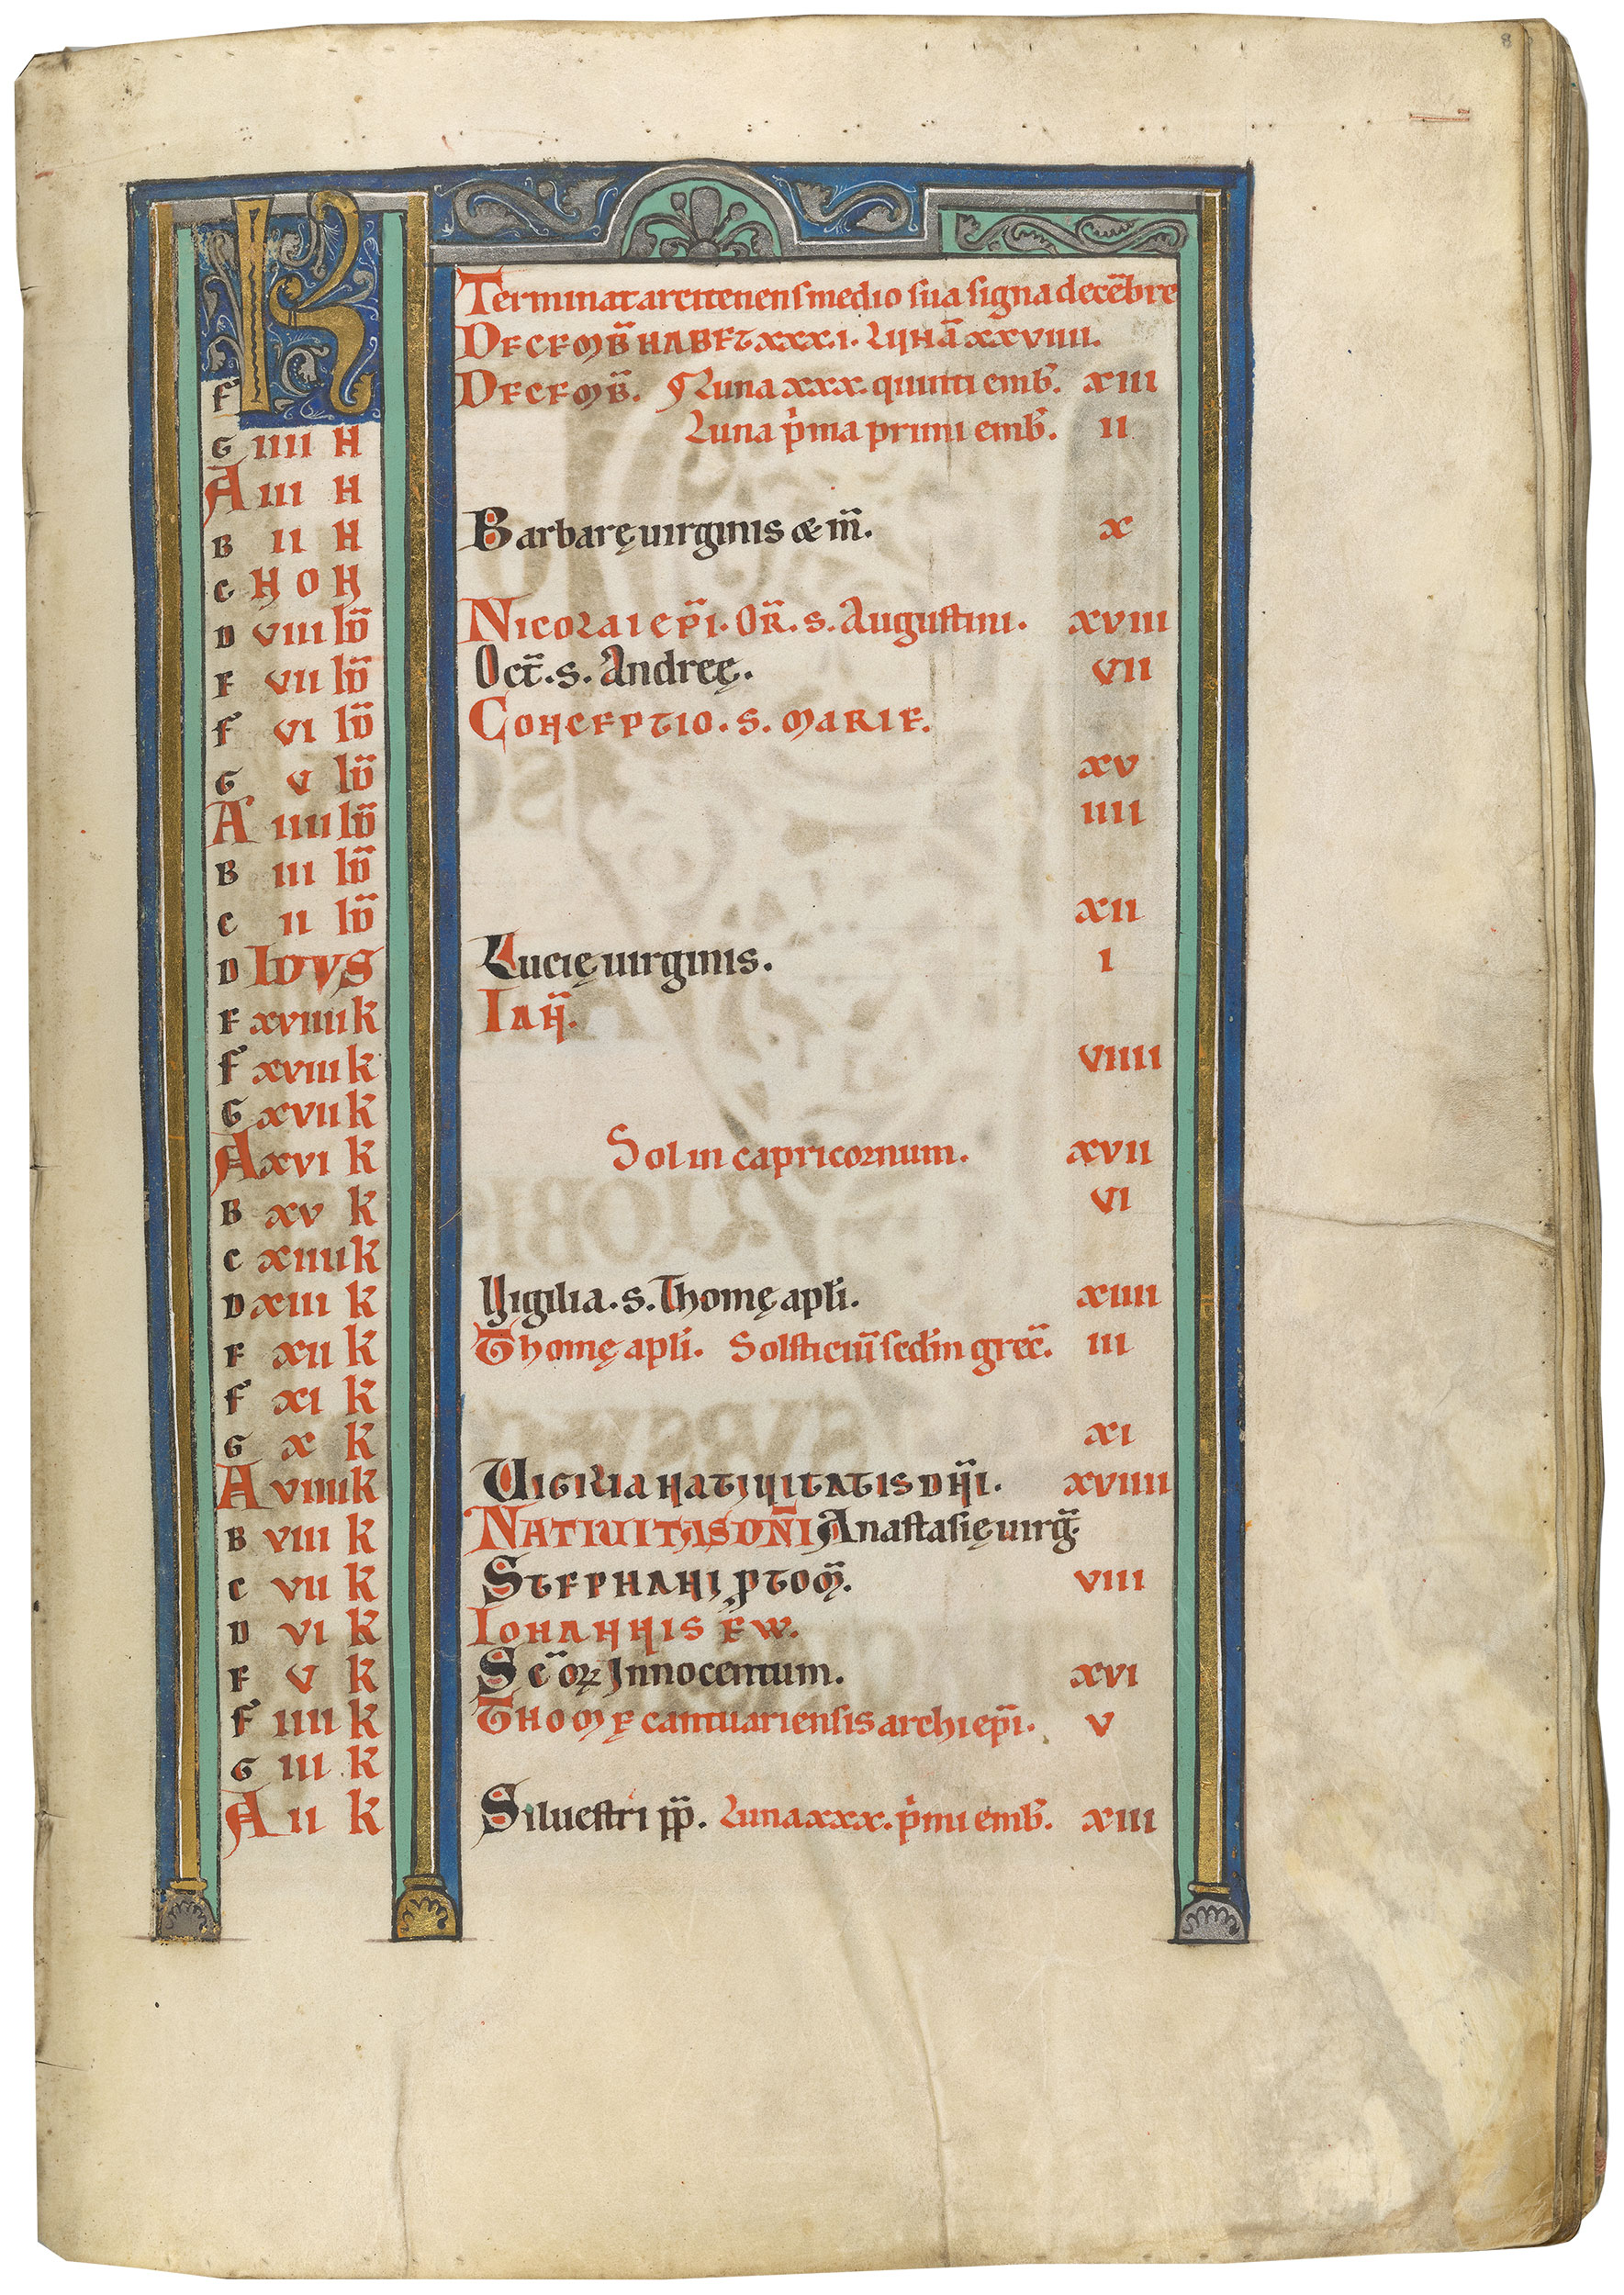 8
Terminat arcitenens medio sua signa decēbre
K DECEMB̄ HABET XXXI. LUNĀ XXVIIII.
F DECEMB̄. Luna xxx. quinti emb̄. XIII
G IIII N Luna p̍ma primi emb̄. II
A III N
B II N Barbarę uirginis & m̄. X
C NON
D VIII ID̄ NICOLAI EP̄I. OR̄. s. Augustini. XVIII
E VII ID̄ Oct̄. s. Andreę. VII
F VI ID̄ CONCEPTIO. S. MARIE.
G V ID̄ XV
A IIII ID̄ IIII
B III ID̄
C II ID̄ XII
D IDVS Lucię uirginis. I
E XVIIII K IAN̄.
F XVIII K VIIII
G XVII K
A XVI K Sol in capricornum. XVII
B XV K VI
C XIIII K
D XIII K Vigilia. s. Thomę apl̄i. XIIII
E XII K Thomę apl̄i. Solsticiū sedm̄ grec̄. III
F XI K
G X K XI
A VIIII K VIGILIA NATIUITATIS DN̄I. XVIIII
B VIII K NATIUITAS DN̄I Anastasię uirḡ.
C VII K STEPHANI PTOM̄. VIII
D VI K IOHANNIS EW.
E V K Sc̄oꝝ Innocentum. XVI
F IIII K THOMĘ cantuariensis archiep̄i. V
G III K
A II K Siluestri pp̄. Luna xxx. p̍mi emb̄. XIII